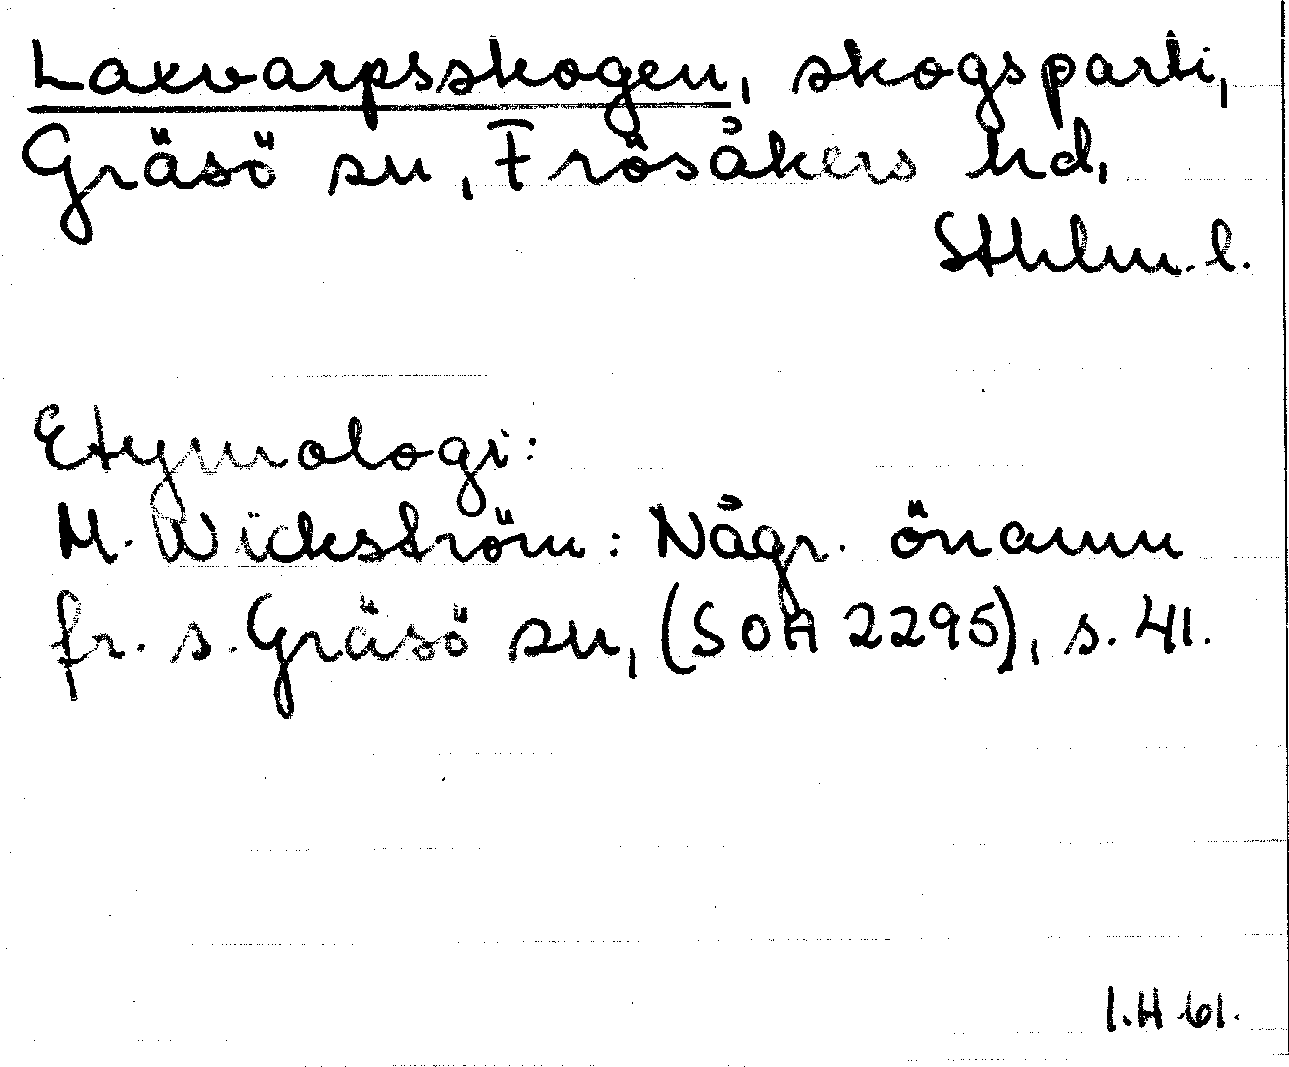 Laxvarpsskogen, skogsparti,
Gräsö sn, Frösåkers hd,
Sthlm. l.
Etymologi:
M. Wickström: Någr. önamn
fr. s. Gräsö sn, (SOA 2295), s. 41.
I.H 61.